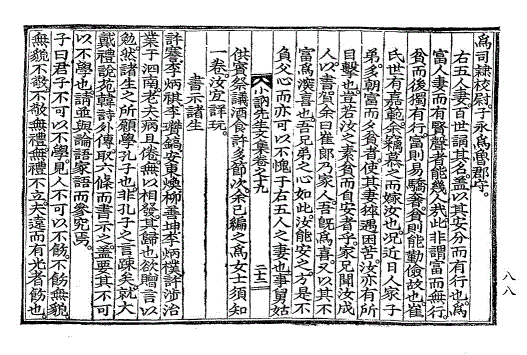 爲司隷校尉子永爲魯郡守
右五人妻百世誦其名盖以其安分而有行也爲
富人妻而有賢聲者能幾人哉此非謂富而無行
貧而後獨有行富則易驕奢貧則能勤儉故也崔
氏世有嘉範余竊慕之而嫁汝也況近日人家子
弟多朝富而夕貧者使其妻梓遇困苦汝亦有所
目擊也豈若汝之素貧而自安者乎家兄聞汝成
人以書賀余曰崔郞乃家人吾旣爲喜又以其不
富爲漢喜也吾兄弟之心如此汝能安之方是不
負父心而亦可以不愧于右五人之妻也事舅姑
供賓祭議酒食許多節次余已編之爲女士須知
一卷汝宜詳玩
小訥先生文集卷之十九
二十二
書示諸生
許蹇李炳祺李瓚鎬安東煥柳善坤李炳樸許涉治
業于泗南老夫病且倦無以相發其歸也欲贈言以
勉然諸生之所願學孔子也非孔子之言疎矣就大
戴禮說苑韓詩外傳取六條而書示之盖要其不可
以不學也請並與論語家語而參究焉
子曰君子不可以不學見人不可以不飭不飭無貌
無貌不敬不敬無禮無禮不立夫遠而有光者飭也
八八